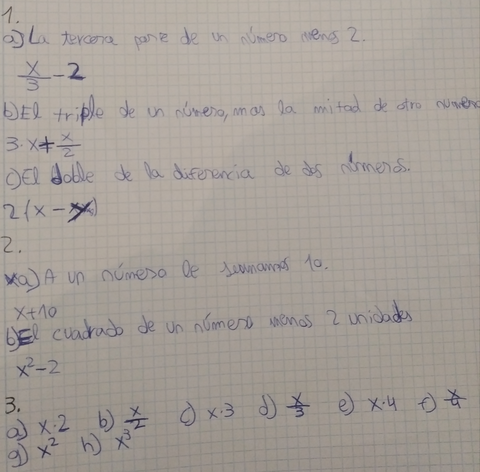 1.
a) La tercera parte de un número menos 2.
x/3 - 2
b) El triple de un número, mas la mitad de otro numero
3·x + x/2
c) El doble de la diferencia de dos números.
2(x -
2.
a) A un número le sumamos 10.
x+10
b) El cuadrado de un número menos 2 unidades
x² - 2
3.
a) x·2 b) x/2 c) x·3 d) x/3 e) x·4 f) x/4
g) x² h) x³